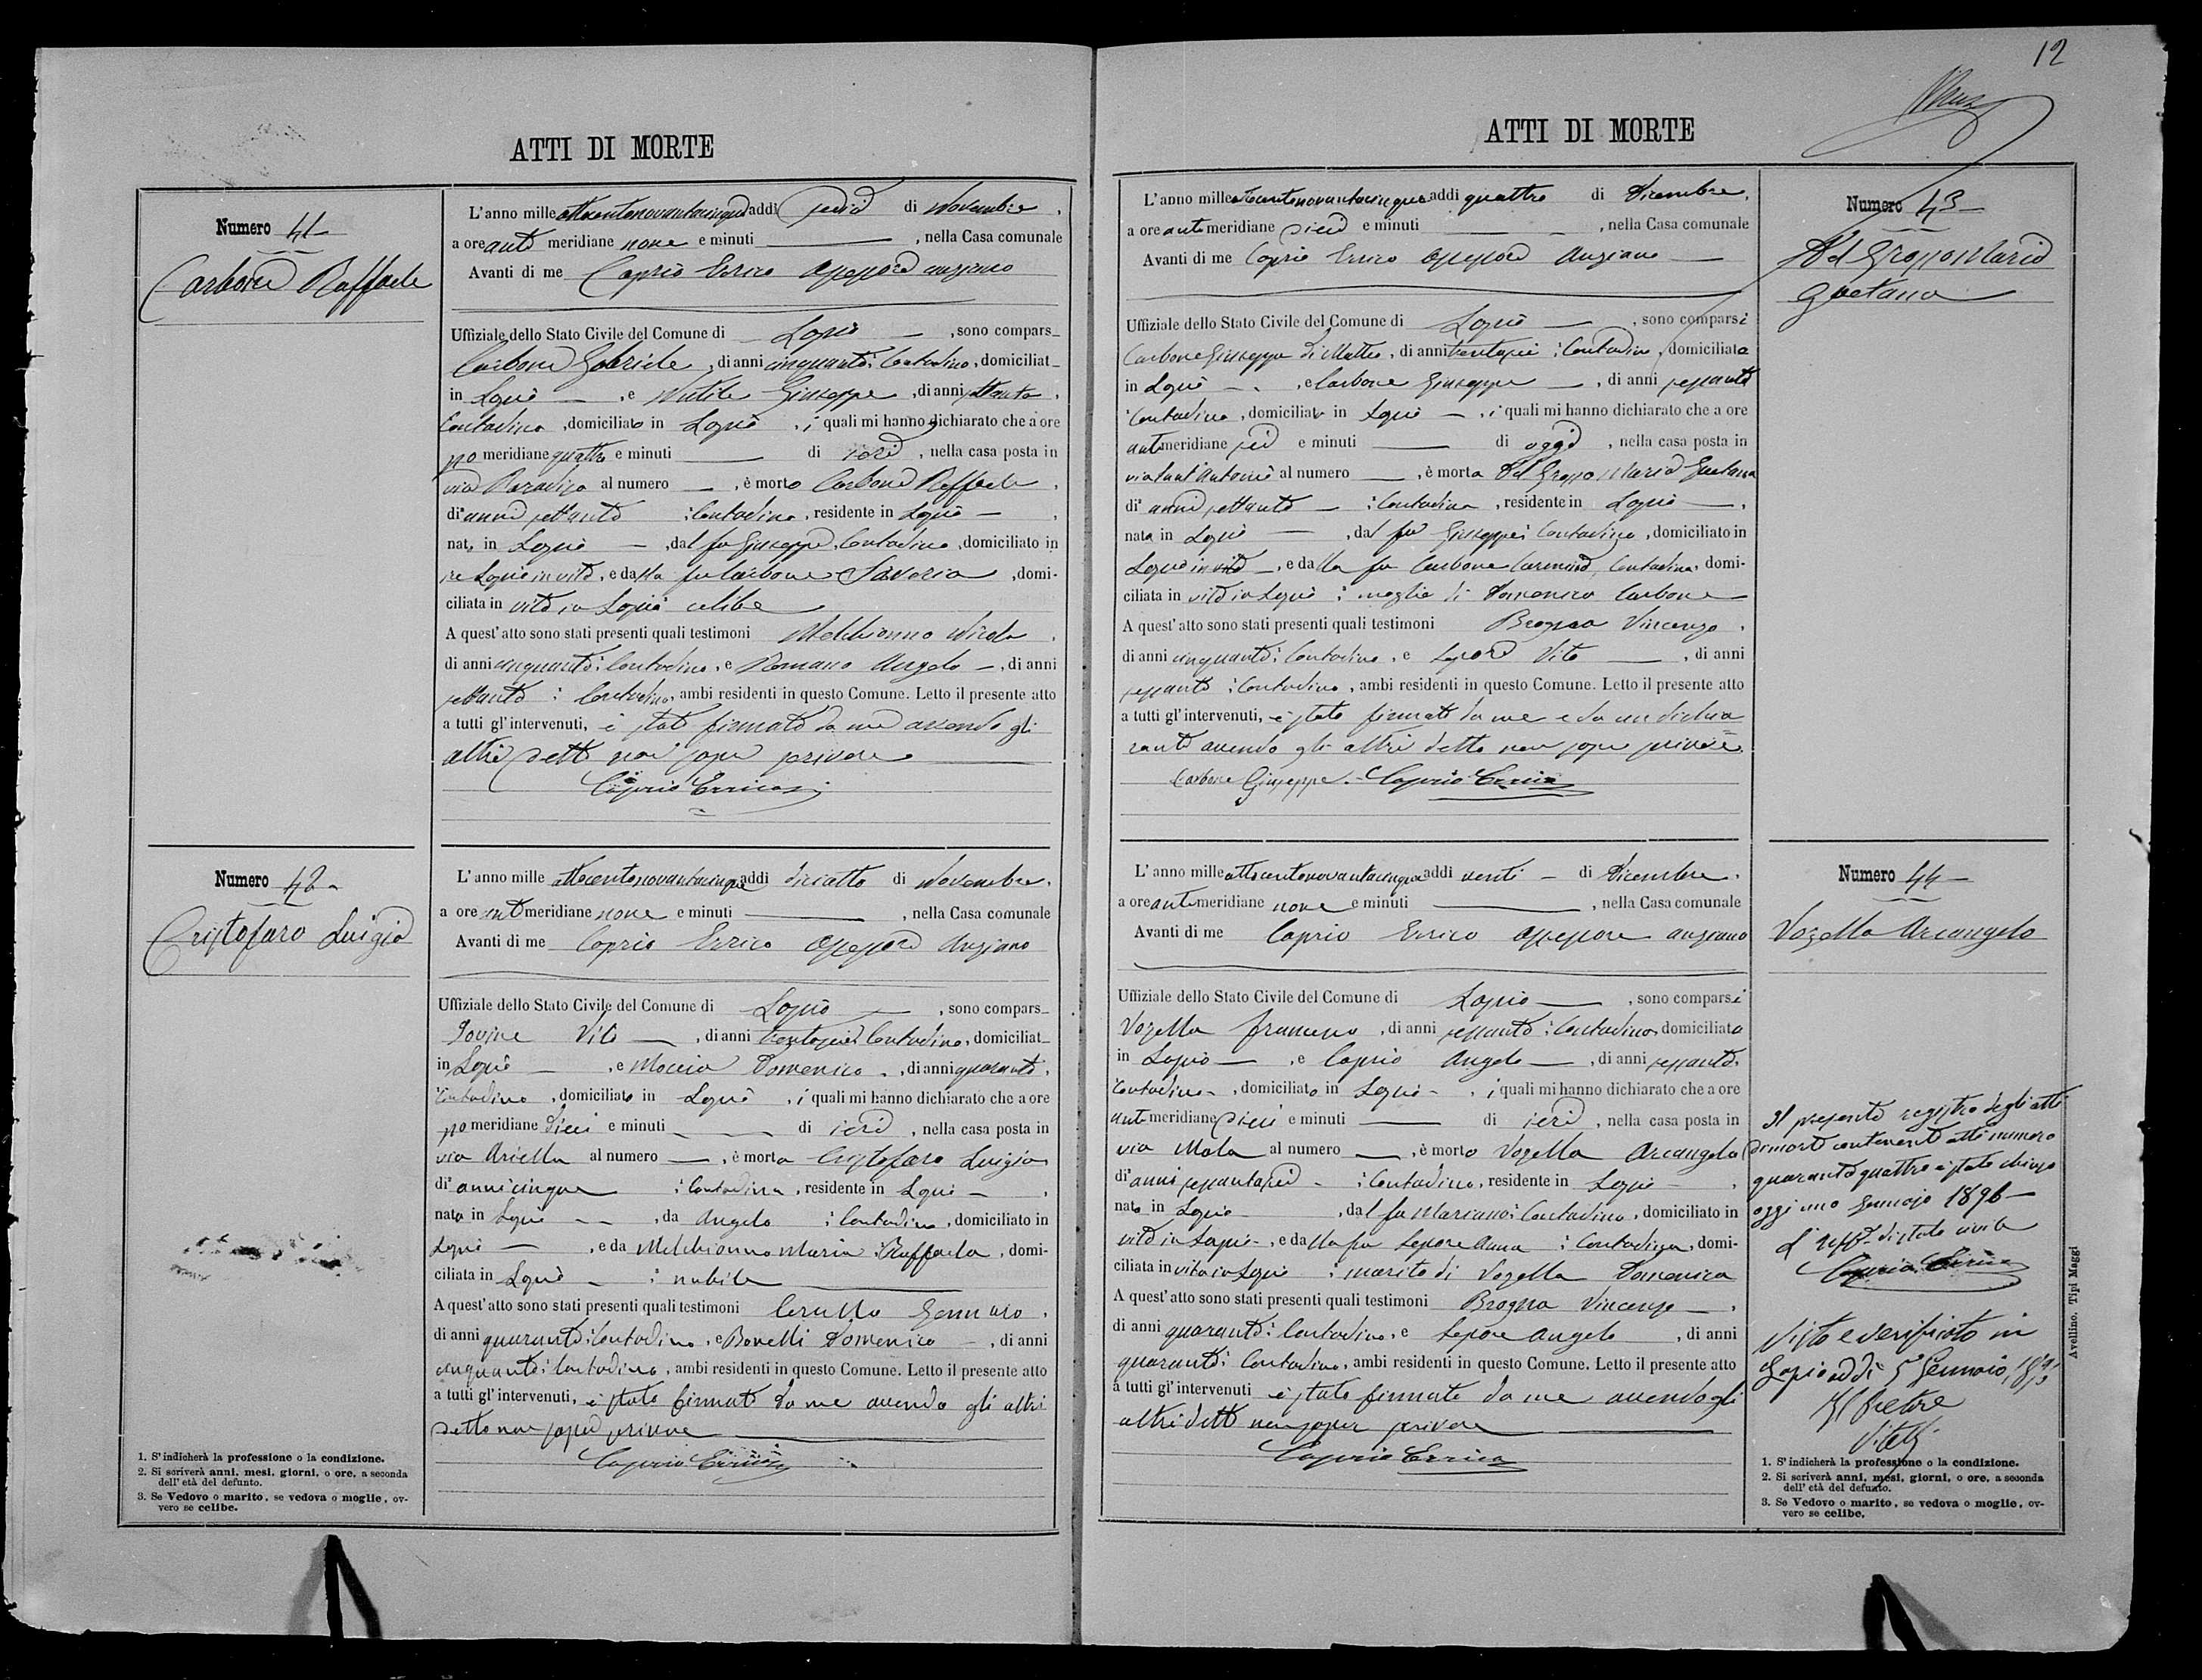 12
ATTI DI MORTE
Numero 41
Carbone Raffaele
L'anno mille ottocentonovantacinque addi sedici di Novembre,
a ore anti meridiane nove e minuti , nella Casa comunale
Avanti di me Caprio Errico Assessore anziano
Uffiziale dello Stato Civile del Comune di Lapio , sono compars
Carbone Gabriele, di anni cinquanta, Contadino, domiciliat
in Lapio , e Giuseppe, di anni settanta,
Contadino, domiciliato in Lapio , i quali mi hanno dichiarato che a ore
po meridiane quattro e minuti di ieri , nella casa posta in
via Paradiso al numero , è morto Carbone Raffaele,
di anni settanta Contadino, residente in Lapio ,
nato in Lapio , dal fu Giuseppe, Contadino, domiciliato in
Lapio in vita, e dalla fu Carbone Saveria , domi-
ciliata in vita in Lapio celibe
A quest' atto sono stati presenti quali testimoni Melchionno Nicola,
di anni cinquanta, Contadino, e Romano Angelo , di anni
settanta Contadino, ambi residenti in questo Comune. Letto il presente atto
a tutti gl' intervenuti, è stato firmato da me avendo gli
altri detto non saper scrivere
Caprio Errico
Numero 42
Cristofaro Luigia
L'anno mille ottocentonovantacinque addi diciotto di Novembre,
a ore anti meridiane nove e minuti , nella Casa comunale
Avanti di me Caprio Errico Assessore Anziano
Uffiziale dello Stato Civile del Comune di Lapio , sono compars
Iovine Vito , di anni trentasei, Contadino, domiciliat
in Lapio , e Moccia Domenico , di anni quaranta,
Contadino, domiciliato in Lapio , i quali mi hanno dichiarato che a ore
po meridiane dieci e minuti di ieri , nella casa posta in
via Ariella al numero , è morta Cristofaro Luigia
di anni cinque Contadina, residente in Lapio ,
nata in Lapio , da Angelo Contadino, domiciliato in
Lapio , e da Melchionno Maria Raffaela, domi-
ciliata in Lapio nubile
A quest' atto sono stati presenti quali testimoni Cerullo Gennaro,
di anni quaranta, Contadino, e Bonelli Domenico , di anni
cinquanta, Contadino, ambi residenti in questo Comune. Letto il presente atto
a tutti gl' intervenuti, è stato firmato da me avendo gli altri
detto non saper scrivere
Caprio Errico
1. S' indicherà la professione o la condizione.
2. Si scriverà anni, mesi, giorni, o ore, a seconda
dell' età del defunto.
3. Se Vedovo o marito, se vedova o moglie, ov-
vero se celibe.
ATTI DI MORTE
L'anno mille ottocentonovantacinque addi quattro di Dicembre,
a ore anti meridiane dieci e minuti , nella Casa comunale
Avanti di me Caprio Errico Assessore Anziano
Uffiziale dello Stato Civile del Comune di Lapio , sono comparsi
Carbone Giuseppe di Matteo, di anni trentasei Contadino, domiciliato
in Lapio , e Carbone Giuseppe , di anni sessanta
Contadino, domiciliato in Lapio , i quali mi hanno dichiarato che a ore
anti meridiane sei e minuti di oggi , nella casa posta in
via Sant'Antonio al numero , è morta Del Grosso Maria Gaetana
di anni settanta Contadina, residente in Lapio ,
nata in Lapio , dal fu Giuseppe Contadino, domiciliato in
Lapio in vita , e dalla fu Carbone Carmina, Contadina, domi-
ciliata in vita in Lapio moglie di Domenico Carbone
A quest' atto sono stati presenti quali testimoni Brogna Vincenzo,
di anni cinquanta, Contadino, e Lepore Vito , di anni
sessanta Contadino, ambi residenti in questo Comune. Letto il presente atto
a tutti gl' intervenuti, è stato firmato da me e da un dichia
rante avendo gli altri detto non saper scrivere
Carbone Giuseppe Caprio Errico
Numero 43
Del Grosso Maria
Gaetana
L'anno mille ottocentonovantacinque addi venti di Dicembre,
a ore anti meridiane nove e minuti , nella Casa comunale
Avanti di me Caprio Errico Assessore anziano
Uffiziale dello Stato Civile del Comune di Lapio , sono comparsi
Vozella , di anni sessanta, Contadino, domiciliato
in Lapio , e Caprio Angelo , di anni sessanta,
Contadino, domiciliato in Lapio , i quali mi hanno dichiarato che a ore
anti meridiane dieci e minuti di ieri , nella casa posta in
via Mola al numero , è morto Vozella Arcangelo
di anni sessantasei Contadino, residente in Lapio ,
nato in Lapio , dal fu Mariano Contadino, domiciliato in
vita in Lapio , e dalla fu Lepore Anna Contadina, domi-
ciliata in vita in Lapio marito di Vozella Domenica
A quest' atto sono stati presenti quali testimoni Brogna Vincenzo ,
di anni quaranta, Contadino, e Lepore Angelo , di anni
quaranta, Contadino, ambi residenti in questo Comune. Letto il presente atto
a tutti gl' intervenuti è stato firmato da me avendo gli
altri detto non saper scrivere
Caprio Errico
Numero 44
Vozella Arcangelo
Il presente registro degli atti
di morte contenente atti numero
quarantaquattro è stato chiuso
oggi uno Gennajo 1896
L'Uff di stato civile
Caprio Errico
Visto e verificato in
Lapio addì 5 Gennaio
Il Pretore
1. S' indicherà la professione o la condizione.
2. Si scriverà anni, mesi, giorni, o ore, a seconda
dell' età del defunto.
3. Se Vedovo o marito, se vedova o moglie, ov-
vero se celibe.
Avellino. Tipi Maggi